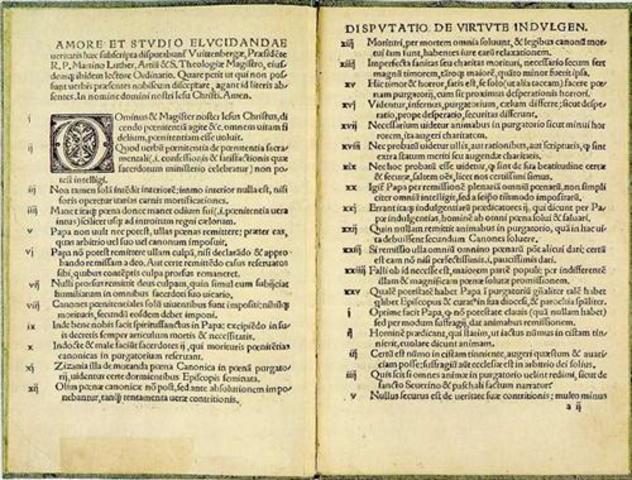 AMORE ET STVDIO ELVCIDANDAE
ueritatis hæc subscripta disputabunť Vuittenbergæ, Præsidēte
R. P. Martino Luther, Artiū & S. Theologiæ Magistro, eius-
demq; ibidem lectore Ordinario. Quare petit ut qui non pos-
sunt uerbis præsentes nobiscum disceptare, agant id literis ab-
sentes. In nomine domini nostri Iesu Christi. Amen.
i DOminus & Magister noster Iesus Christus, di-
cendo pœnitentiā agite &c. omnem uitam fi-
delium, pœnitentiam esse uoluit.
ij Quod uerbū pœnitentia de pœnitentia sacra-
mentali (.i. confessionis & satisfactionis quæ
sacerdotum ministerio celebratur) non po-
test intelligi.
iij Non tamen solā intēdit interiorē: immo interior nulla est, nisi
foris operetur uarias carnis mortificationes.
iiij Manet itaq; pœna donec manet odium sui (.i. pœnitentia uera
intus) scilicet usq; ad introitum regni cælorum.
v Papa non uult nec potest, ullas pœnas remittere: præter eas,
quas arbitrio uel suo uel canonum imposuit.
vj Papa nō potest remittere ullam culpā, nisi declarādo & appro-
bando remissam a deo. Aut certe remittēdo casus reseruatos
sibi, quibus contēptis culpa prorsus remaneret.
vij Nulli prorsus remittit deus culpam, quin simul eum subijciat
humiliatum in omnibus sacerdoti suo uicario.
viij Canones pœnitentiales solū uiuentibus sunt impositi: nihilq;
morituris, secundū eosdem debet imponi.
ix Inde bene nobis facit spiritussanctus in Papa: excipiēdo in su-
is decretis semper articulum mortis & necessitatis.
x Indocte & male faciūt sacerdotes ij, qui morituris pœnitētias
canonicas in purgatorium reseruant.
xj Zizania illa de mutanda pœna Canonica in pœnā purgato-
rij, uidentur certe dormientibus Episcopis seminata.
xij Olim pœnæ canonicæ nō post, sed ante absolutionem impo-
nebantur, tanq̃ tentamenta ueræ contritionis.
DISPVTATIO DE VIRTVTE INDVLGEN.
xiij Morituri, per mortem omnia soluunt, & legibus canonū mor-
tui iam sunt, habentes iure earū relaxationem.
xiiij Imperfecta sanitas seu charitas morituri, necessario secum fert
magnū timorem, tātoq; maiorē, quāto minor fuerit ipsa.
xv Hic timor & horror, satis est, se solo (ut alia taceam) facere pœ-
nam purgatorij, cum sit proximus desperationis horrori.
xvj Videntur, infernus, purgatorium, cælum differre: sicut despe-
ratio, prope desperatio, securitas differunt.
xvij Necessarium uidetur animabus in purgatorio sicut minui hor-
rorem, ita augeri charitatem.
xviij Nec probatū uidetur ullis, aut rationibus, aut scripturis, q̃ sint
extra statum meriti seu augendæ charitatis.
xix Nec hoc probatū esse uidetur, q̃ sint de sua beatitudine certæ
& securæ, saltem oēs, licet nos certissimi simus.
xx Igiť Papa per remissionē plenariā omniū pœnarū, non simpli-
citer omniū intelligit, sed a seipso tātūmodo impositarū.
xxj Errant itaq; indulgentiarū prædicatores ij, qui dicunt per Pa-
pæ indulgentias, hominē ab omni pœna solui & saluari.
xxij Quin nullam remittit animabus in purgatorio, quā in hac ui-
ta debuissent secundum Canones soluere.
xxiij Si remissio ulla omniū omnino pœnarū pōt alicui dari; certū
est eam nō nisi perfectissimis .i. paucissimis dari.
xxiiij Falli ob id necesse est, maiorem partē populi: per indifferentē
illam & magnificam pœnæ solutæ promissionem.
xxv Qualē potestatē habet Papa ī purgatoriū gñaliter talē habet
q̃libet Episcopus & curat9 in sua diocesi, & parochia spāliter.
i Optime facit Papa, q̃ nō potestate clauis (quā nullam habet)
sed per modum suffragij, dat animabus remissionem.
ij Hominē prædicant, qui statim, ut iactus nūmus in cistam tin-
nierit, euolare dicunt animam.
iij Certū est nūmo in cistam tinniente, augeri quæstum & auari-
ciam posse: suffragiū aut ecclesiæ est in arbitrio dei solius,
iiij Quis scit si omnes animæ in purgatorio uelint redimi, sicut de
sancto Seuerino & paschali factum narratur
v Nullus securus est de ueritate suæ contritionis; multo minus
a ij